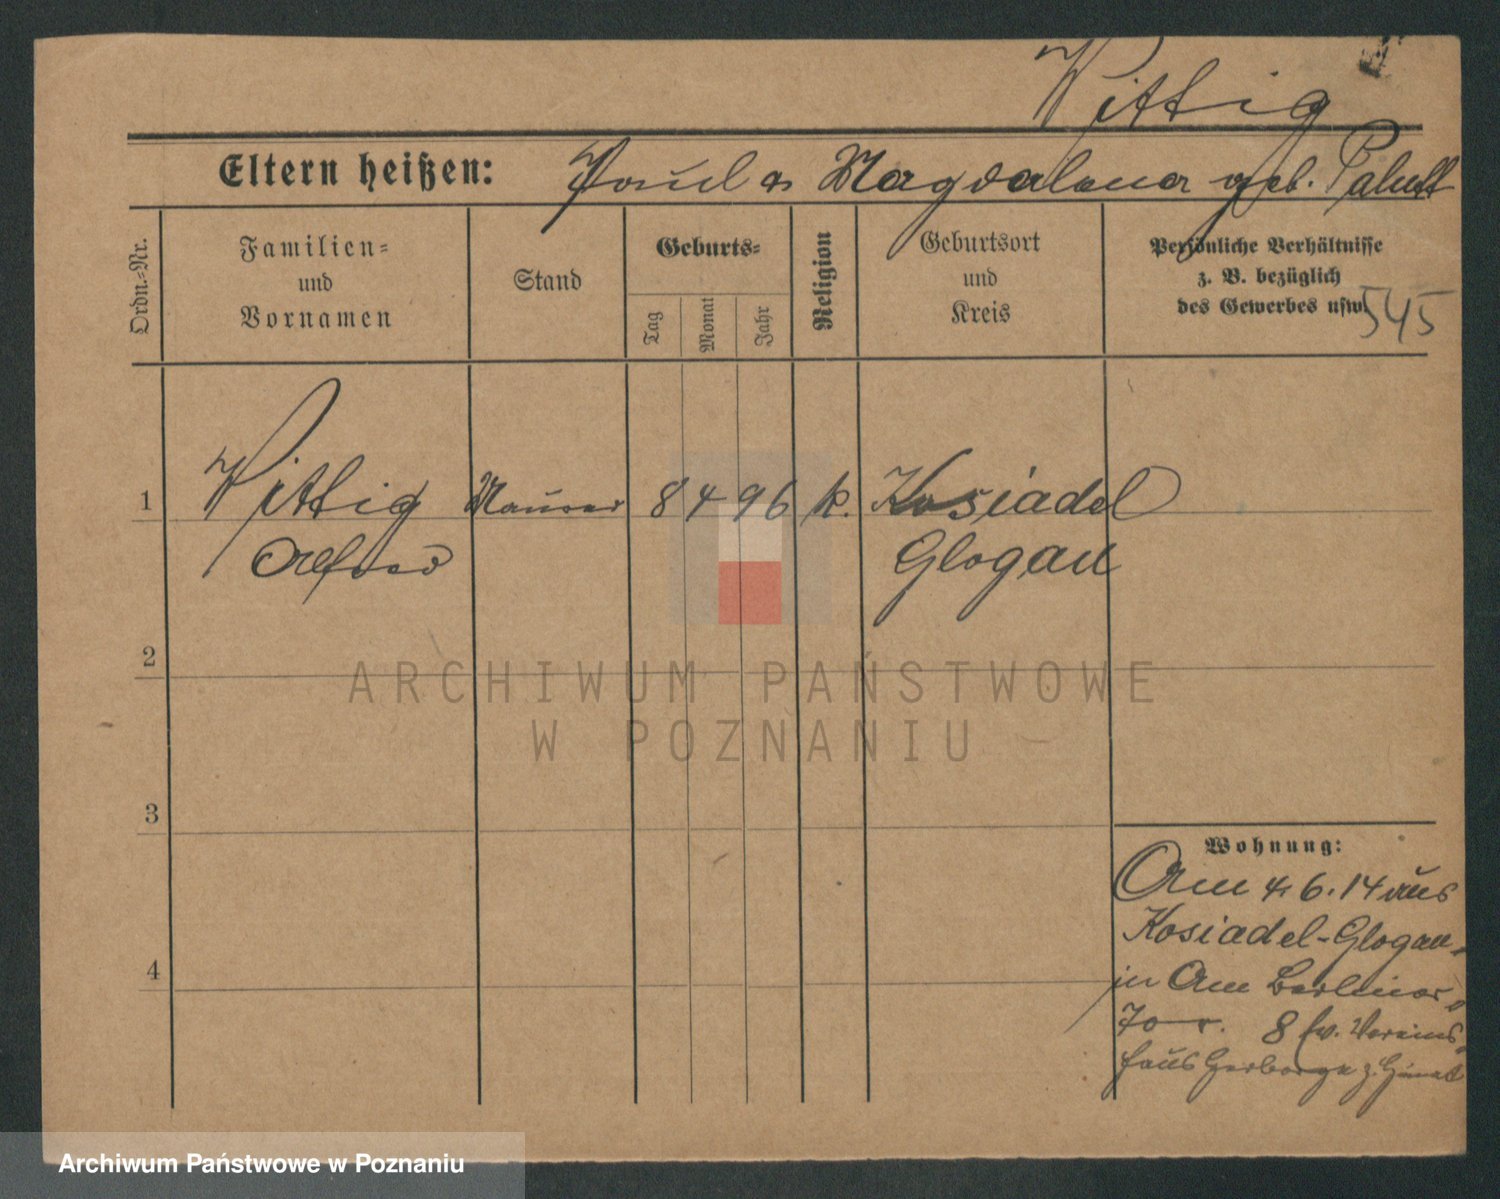 Wittig
Eltern heißen: Paul u Magdalena geb.
Ordn.-Nr.
Familien-
und
Vornamen
Stand
Geburts-
Tag
Monat
Jahr
Religion
Geburtsort
und
Kreis
Persönliche Verhältnisse
z. B. bezüglich
des Gewerbes usw.
545
1 Wittig Maurer 8 4 96 k. Kosiadel
Alfred Glogau
2
3
4
Wohnung:
Am 4.6.14 aus
Kosiadel-Glogau
in Am Berliner-
Tor. 8 Vereins-
haus Herberge z. Heimat
ARCHIWUM PAŃSTWOWE
W POZNANIU
Archiwum Państwowe w Poznaniu